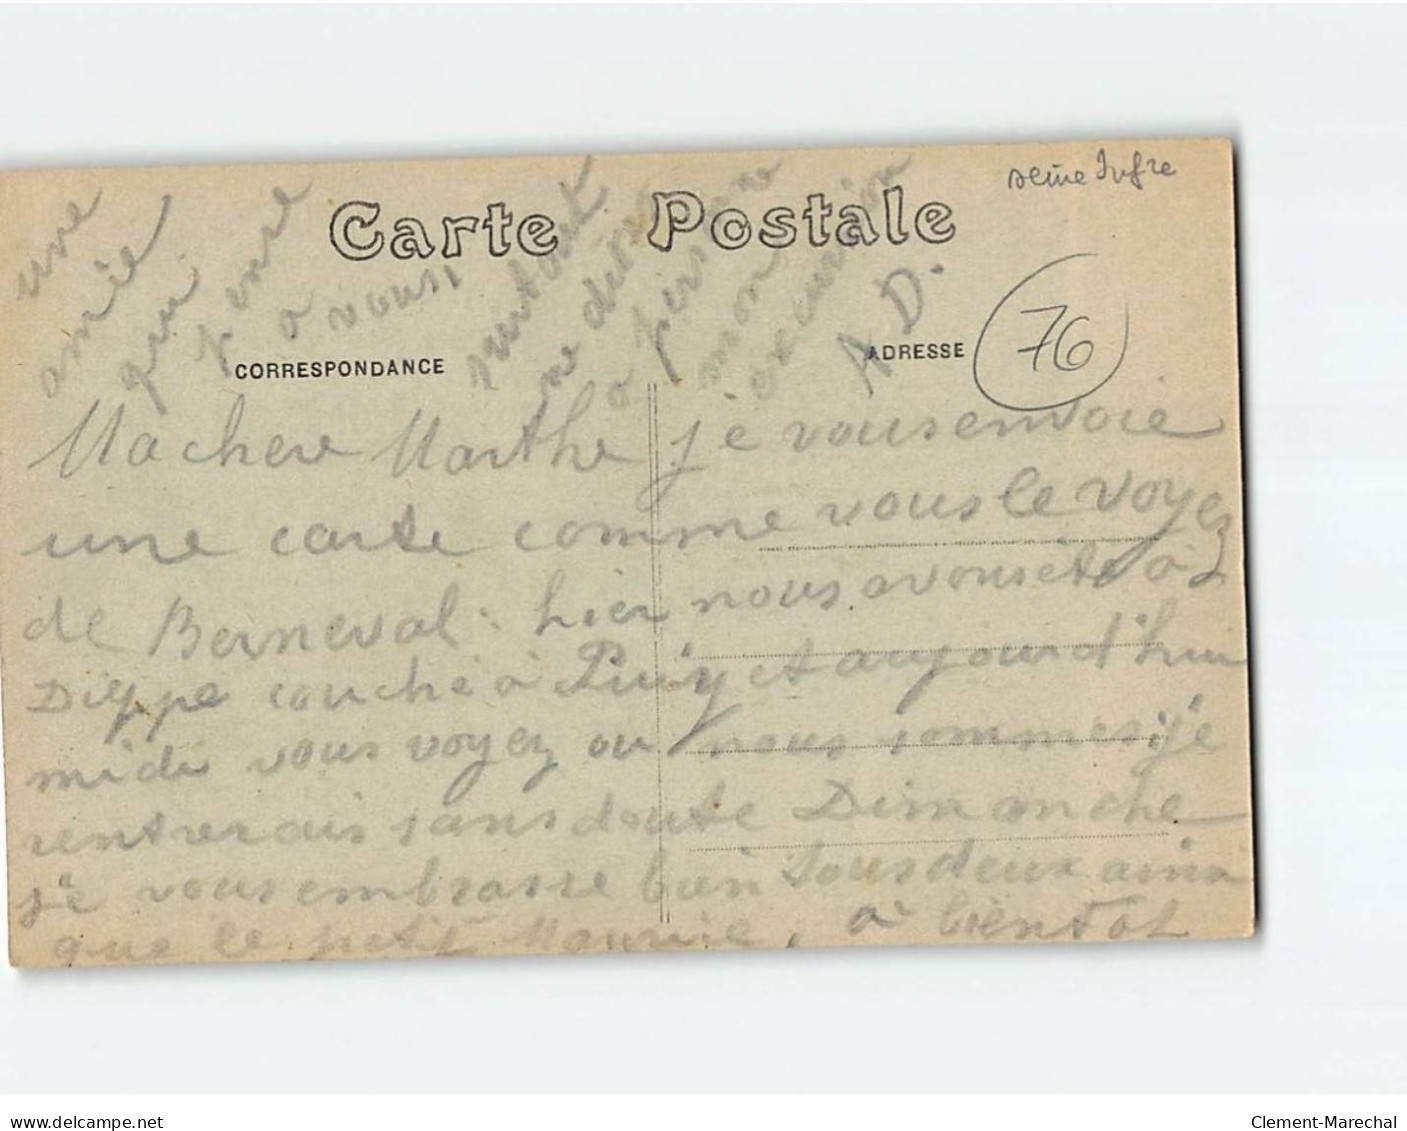 seine Infre
Carte Postale
76
CORRESPONDANCE
ADRESSE
Ma chere Marthe je vous envoie
une carte comme vous le voyez
de Berneval. hier nous avons été à
Dieppe couché à Puiy et aujourd'hui
midi vous voyez ou nous sommes je
rentrerais sans doute Dimanche
je vous embrasse bien tous deux ainsi
que le petit Maurice, à bientot
une
amie
qui
pense
a vous,
surtout
ne dites
a personne
mon
excursion
A D.
delcampe.net
Clement-Marechal